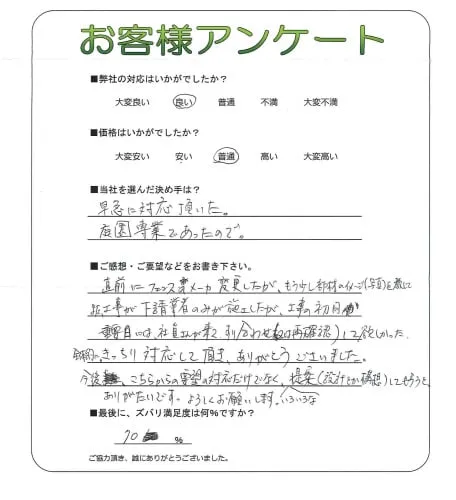 お客様アンケート
■弊社の対応はいかがでしたか?
大変良い 良い 普通 不満 大変不満
■価格はいかがでしたか?
大変安い 安い 普通 高い 大変高い
■当社を選んだ決め手は?
早急に対応頂いた。
庭園専業であったので。
■ご感想・ご要望などをお書き下さい。
直前にフェンスメーカ変更したが、もう少し部材のイメージ(写真)を
工事が下請業者のみが施工したが、工事の初日
には、社員さんが来て打合わせ再確認)して欲しかった。
きっちり対応して頂き、ありがとうございました。
今後、こちらからの要望の対応だけでなく、提案(設計とか構想)してもらうと、
ありがたいです。よろしくお願いします。いろいろな
■最後に、ズバリ満足度は何%ですか?
70 %
ご協力頂き、誠にありがとうございました。